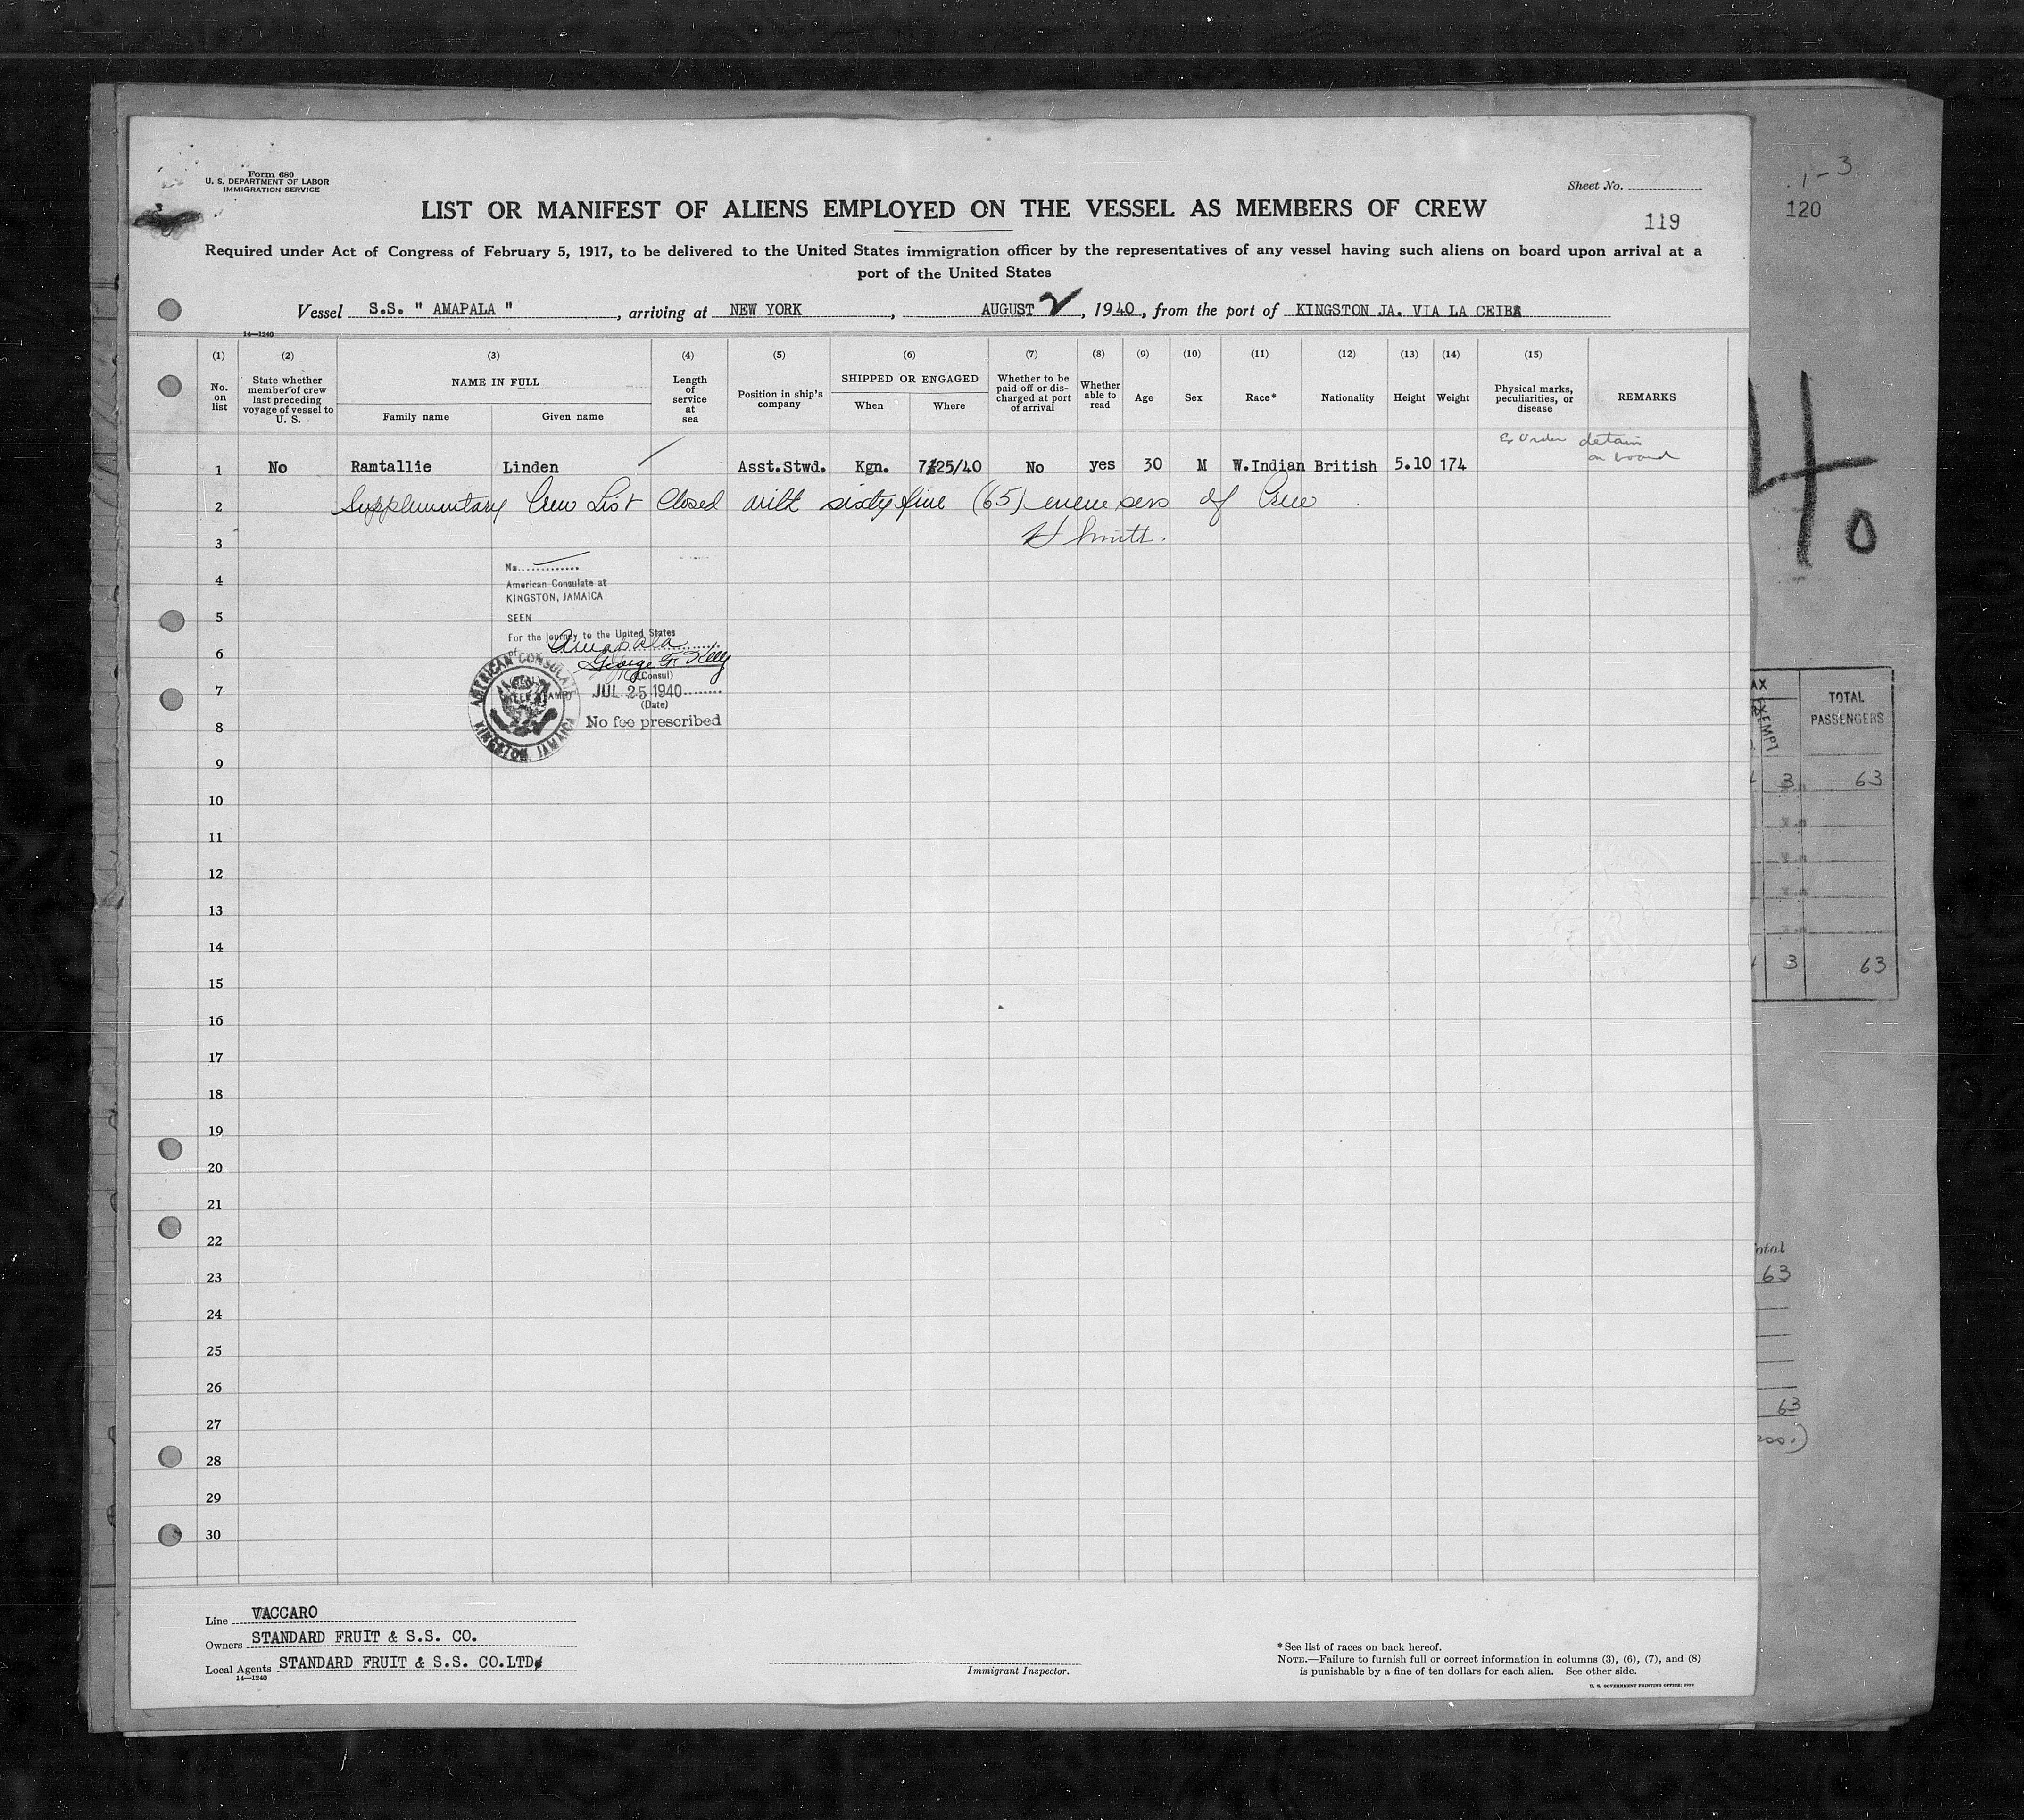 Form 680
U. S. DEPARTMENT OF LABOR
IMMIGRATION SERVICE
Sheet No.
1-3
120
LIST OR MANIFEST OF ALIENS EMPLOYED ON THE VESSEL AS MEMBERS OF CREW
119
Required under Act of Congress of February 5, 1917, to be delivered to the United States immigration officer by the representatives of any vessel having such aliens on board upon arrival at a
port of the United States
Vessel S.S. " AMAPALA ", arriving at NEW YORK, AUGUST 2, 1940, from the port of KINGSTON JA. VIA LA CEIBA
14—1240
(1) (2) (3) (4) (5) (6) (7) (8) (9) (10) (11) (12) (13) (14) (15)
No. on list
State whether member of crew last preceding voyage of vessel to U. S.
NAME IN FULL
Family name
Given name
Length of service at sea
Position in ship's company
SHIPPED OR ENGAGED
When
Where
Whether to be paid off or discharged at port of arrival
Whether able to read
Age
Sex
Race*
Nationality
Height
Weight
Physical marks, peculiarities, or disease
REMARKS
Ex Order detain
on board
1 No Ramtallie Linden Asst.Stwd. Kgn. 7/25/40 No yes 30 M W.Indian British 5.10 174
2 Supplementary Crew List Closed with sixty five (65) members of Crew
3 H Smith.
4
5
6
7
8
9
10
11
12
13
14
15
16
17
18
19
20
21
22
23
24
25
26
27
28
29
30
No.
American Consulate at
KINGSTON, JAMAICA
SEEN
For the journey to the United States
of Amapala
George F. Kelly
(Consul)
JUL 25 1940
(Date)
No fee prescribed
AMERICAN CONSULATE
KINGSTON, JAMAICA
TOTAL
PASSENGERS
EXEMPT
3 63
3 63
otal
63
63
Line VACCARO
Owners STANDARD FRUIT & S.S. CO.
Local Agents STANDARD FRUIT & S.S. CO.LTD.
14—1240
Immigrant Inspector.
*See list of races on back hereof.
NOTE.—Failure to furnish full or correct information in columns (3), (6), (7), and (8)
is punishable by a fine of ten dollars for each alien. See other side.
U. S. GOVERNMENT PRINTING OFFICE: 1939